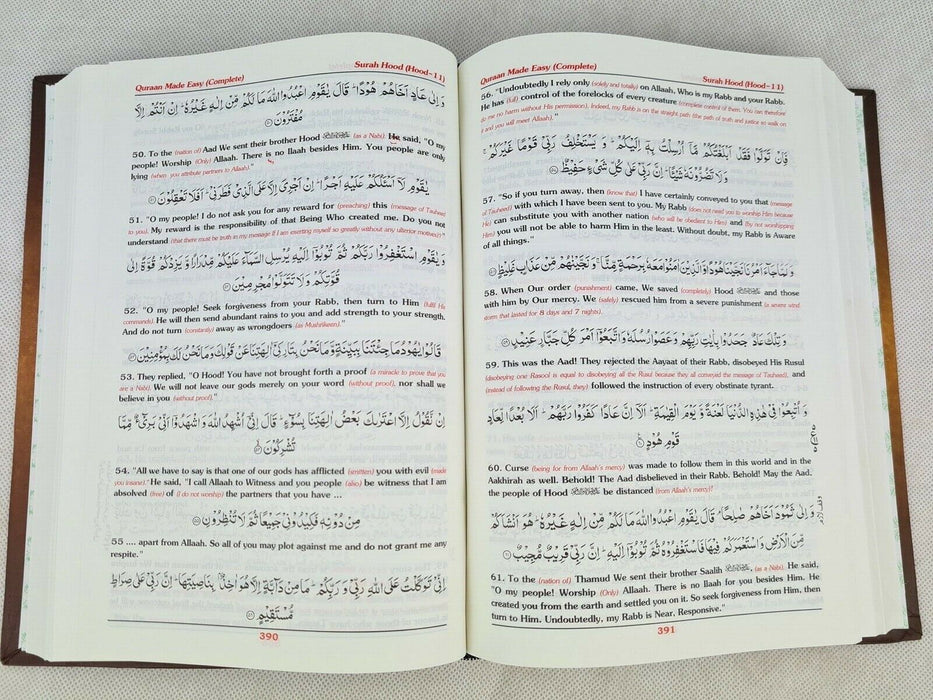 Quraan Made Easy (Complete) Surah Hood (Hood-11)
وَاِلٰى عَادٍ اَخَاهُمْ هُوْدًا ؕ قَالَ يٰقَوْمِ اعْبُدُوا اللّٰهَ مَا لَكُمْ مِّنْ اِلٰهٍ غَيْرُهٗ ؕ اِنْ اَنْتُمْ اِلَّا
مُفْتَرُوْنَ ۝۵۰
50. To the (nation of) Aad We sent their brother Hood (as a Nabi). He said, "O my
people! Worship (Only) Allaah. There is no Ilaah besides Him. You people are only
lying (when you attribute partners to Allaah)."
يٰقَوْمِ لَاۤ اَسْئَلُكُمْ عَلَيْهِ اَجْرًا ؕ اِنْ اَجْرِىَ اِلَّا عَلَى الَّذِىْ فَطَرَنِىْ ؕ اَفَلَا تَعْقِلُوْنَ ۝۵۱
51. "O my people! I do not ask you for any reward for (preaching) this (message of Tauheed
to you). My reward is the responsibility of that Being Who created me. Do you not
understand (that there must be truth in my message if I am exerting myself so greatly without any ulterior motives)?"
وَيٰقَوْمِ اسْتَغْفِرُوْا رَبَّكُمْ ثُمَّ تُوْبُوْۤا اِلَيْهِ يُرْسِلِ السَّمَآءَ عَلَيْكُمْ مِّدْرَارًا وَّيَزِدْكُمْ قُوَّةً اِلٰى
قُوَّتِكُمْ وَلَا تَتَوَلَّوْا مُجْرِمِيْنَ ۝۵۲
52. "O my people! Seek forgiveness from your Rabb, then turn to Him (fulfil His
commands). He will then send abundant rains to you and add strength to your strength.
And do not turn (constantly) away as wrongdoers (as Mushrikeen)."
قَالُوْا يٰهُوْدُ مَا جِئْتَنَا بِبَيِّنَةٍ وَّمَا نَحْنُ بِتَارِكِىْۤ اٰلِهَتِنَا عَنْ قَوْلِكَ وَمَا نَحْنُ لَكَ بِمُؤْمِنِيْنَ ۝۵۳
53. They replied, "O Hood! You have not brought forth a proof (a miracle to prove that you
are a Nabi). We will not leave our gods merely on your word (without proof), nor shall we
believe in you (without proof)."
اِنْ نَّقُوْلُ اِلَّا اعْتَرٰىكَ بَعْضُ اٰلِهَتِنَا بِسُوْٓءٍ ؕ قَالَ اِنِّىْۤ اُشْهِدُ اللّٰهَ وَاشْهَدُوْۤا اَنِّىْ بَرِىْٓءٌ مِّمَّا
تُشْرِكُوْنَ ۝۵۴
54. "All we have to say is that one of our gods has afflicted (smitten) you with evil (made
you insane)." He said, "I call Allaah to Witness and you people (also) be witness that I am
absolved (free) of (I do not worship) the partners that you have ...
مِنْ دُوْنِهٖ فَكِيْدُوْنِىْ جَمِيْعًا ثُمَّ لَا تُنْظِرُوْنِ ۝۵۵
55 .... apart from Allaah. So all of you may plot against me and do not grant me any
respite."
اِنِّىْ تَوَكَّلْتُ عَلَى اللّٰهِ رَبِّىْ وَرَبِّكُمْ ؕ مَا مِنْ دَآبَّةٍ اِلَّا هُوَ اٰخِذٌۢ بِنَاصِيَتِهَا ؕ اِنَّ رَبِّىْ عَلٰى صِرَاطٍ
مُّسْتَقِيْمٍ ۝۵۶
390
Quraan Made Easy (Complete) Surah Hood (Hood-11)
56. "Undoubtedly I rely only (solely and totally) on Allaah, Who is my Rabb and your Rabb.
He has (full) control of the forelocks of every creature (complete control of them. You can therefore
do me no harm without His permission). Indeed, my Rabb is on the straight path (the path of truth and justice so walk on
it and you will meet Allaah)."
فَاِنْ تَوَلَّوْا فَقَدْ اَبْلَغْتُكُمْ مَّاۤ اُرْسِلْتُ بِهٖۤ اِلَيْكُمْ ؕ وَيَسْتَخْلِفُ رَبِّىْ قَوْمًا غَيْرَكُمْ ۚ
وَلَا تَضُرُّوْنَهٗ شَيْئًا ؕ اِنَّ رَبِّىْ عَلٰى كُلِّ شَىْءٍ حَفِيْظٌ ۝۵۷
57. "So if you turn away, then (know that) I have certainly conveyed to you that (message
of Tauheed) with which I have been sent to you. My Rabb (does not need you to worship Him because
He) can substitute you with another nation (who will be obedient to Him) and (by not worshipping
Him) you will not be able to harm Him in the least. Without doubt, my Rabb is Aware
of all things."
وَلَمَّا جَآءَ اَمْرُنَا نَجَّيْنَا هُوْدًا وَّالَّذِيْنَ اٰمَنُوْا مَعَهٗ بِرَحْمَةٍ مِّنَّا ۚ وَنَجَّيْنٰهُمْ مِّنْ عَذَابٍ غَلِيْظٍ ۝۵۸
58. When Our order (punishment) came, We saved (completely) Hood and those
with him by Our mercy. We (safely) rescued him from a severe punishment (a severe wind
storm that lasted for 8 days and 7 nights).
وَتِلْكَ عَادٌ جَحَدُوْا بِاٰيٰتِ رَبِّهِمْ وَعَصَوْا رُسُلَهٗ وَاتَّبَعُوْۤا اَمْرَ كُلِّ جَبَّارٍ عَنِيْدٍ ۝۵۹
59. This was the Aad! They rejected the Aayaat of their Rabb, disobeyed His Rusul
(disobeying one Rasool is equal to disobeying all the Rusul because they all conveyed the message of Tauheed), and
(instead of following the Rusul, they) followed the instruction of every obstinate tyrant.
وَاُتْبِعُوْا فِىْ هٰذِهِ الدُّنْيَا لَعْنَةً وَّيَوْمَ الْقِيٰمَةِ ؕ اَلَاۤ اِنَّ عَادًا كَفَرُوْا رَبَّهُمْ ؕ اَلَا بُعْدًا لِّعَادٍ
قَوْمِ هُوْدٍ ۝۶۰
60. Curse (being far from Allaah's mercy) was made to follow them in this world and in the
Aakhirah as well. Behold! The Aad disbelieved in their Rabb. Behold! May the Aad,
the people of Hood be distanced (from Allaah's mercy)!
وَاِلٰى ثَمُوْدَ اَخَاهُمْ صٰلِحًا ۘ قَالَ يٰقَوْمِ اعْبُدُوا اللّٰهَ مَا لَكُمْ مِّنْ اِلٰهٍ غَيْرُهٗ ؕ هُوَ اَنْشَاَكُمْ
مِّنَ الْاَرْضِ وَاسْتَعْمَرَكُمْ فِيْهَا فَاسْتَغْفِرُوْهُ ثُمَّ تُوْبُوْۤا اِلَيْهِ ؕ اِنَّ رَبِّىْ قَرِيْبٌ مُّجِيْبٌ ۝۶۱
61. To the (nation of) Thamud We sent their brother Saalih (as a Nabi). He said,
"O my people! Worship (Only) Allaah. There is no Ilaah for you besides Him. He
created you from the earth and settled you on it. So seek forgiveness from Him, then
turn to Him. Undoubtedly, my Rabb is Near, Responsive."
391